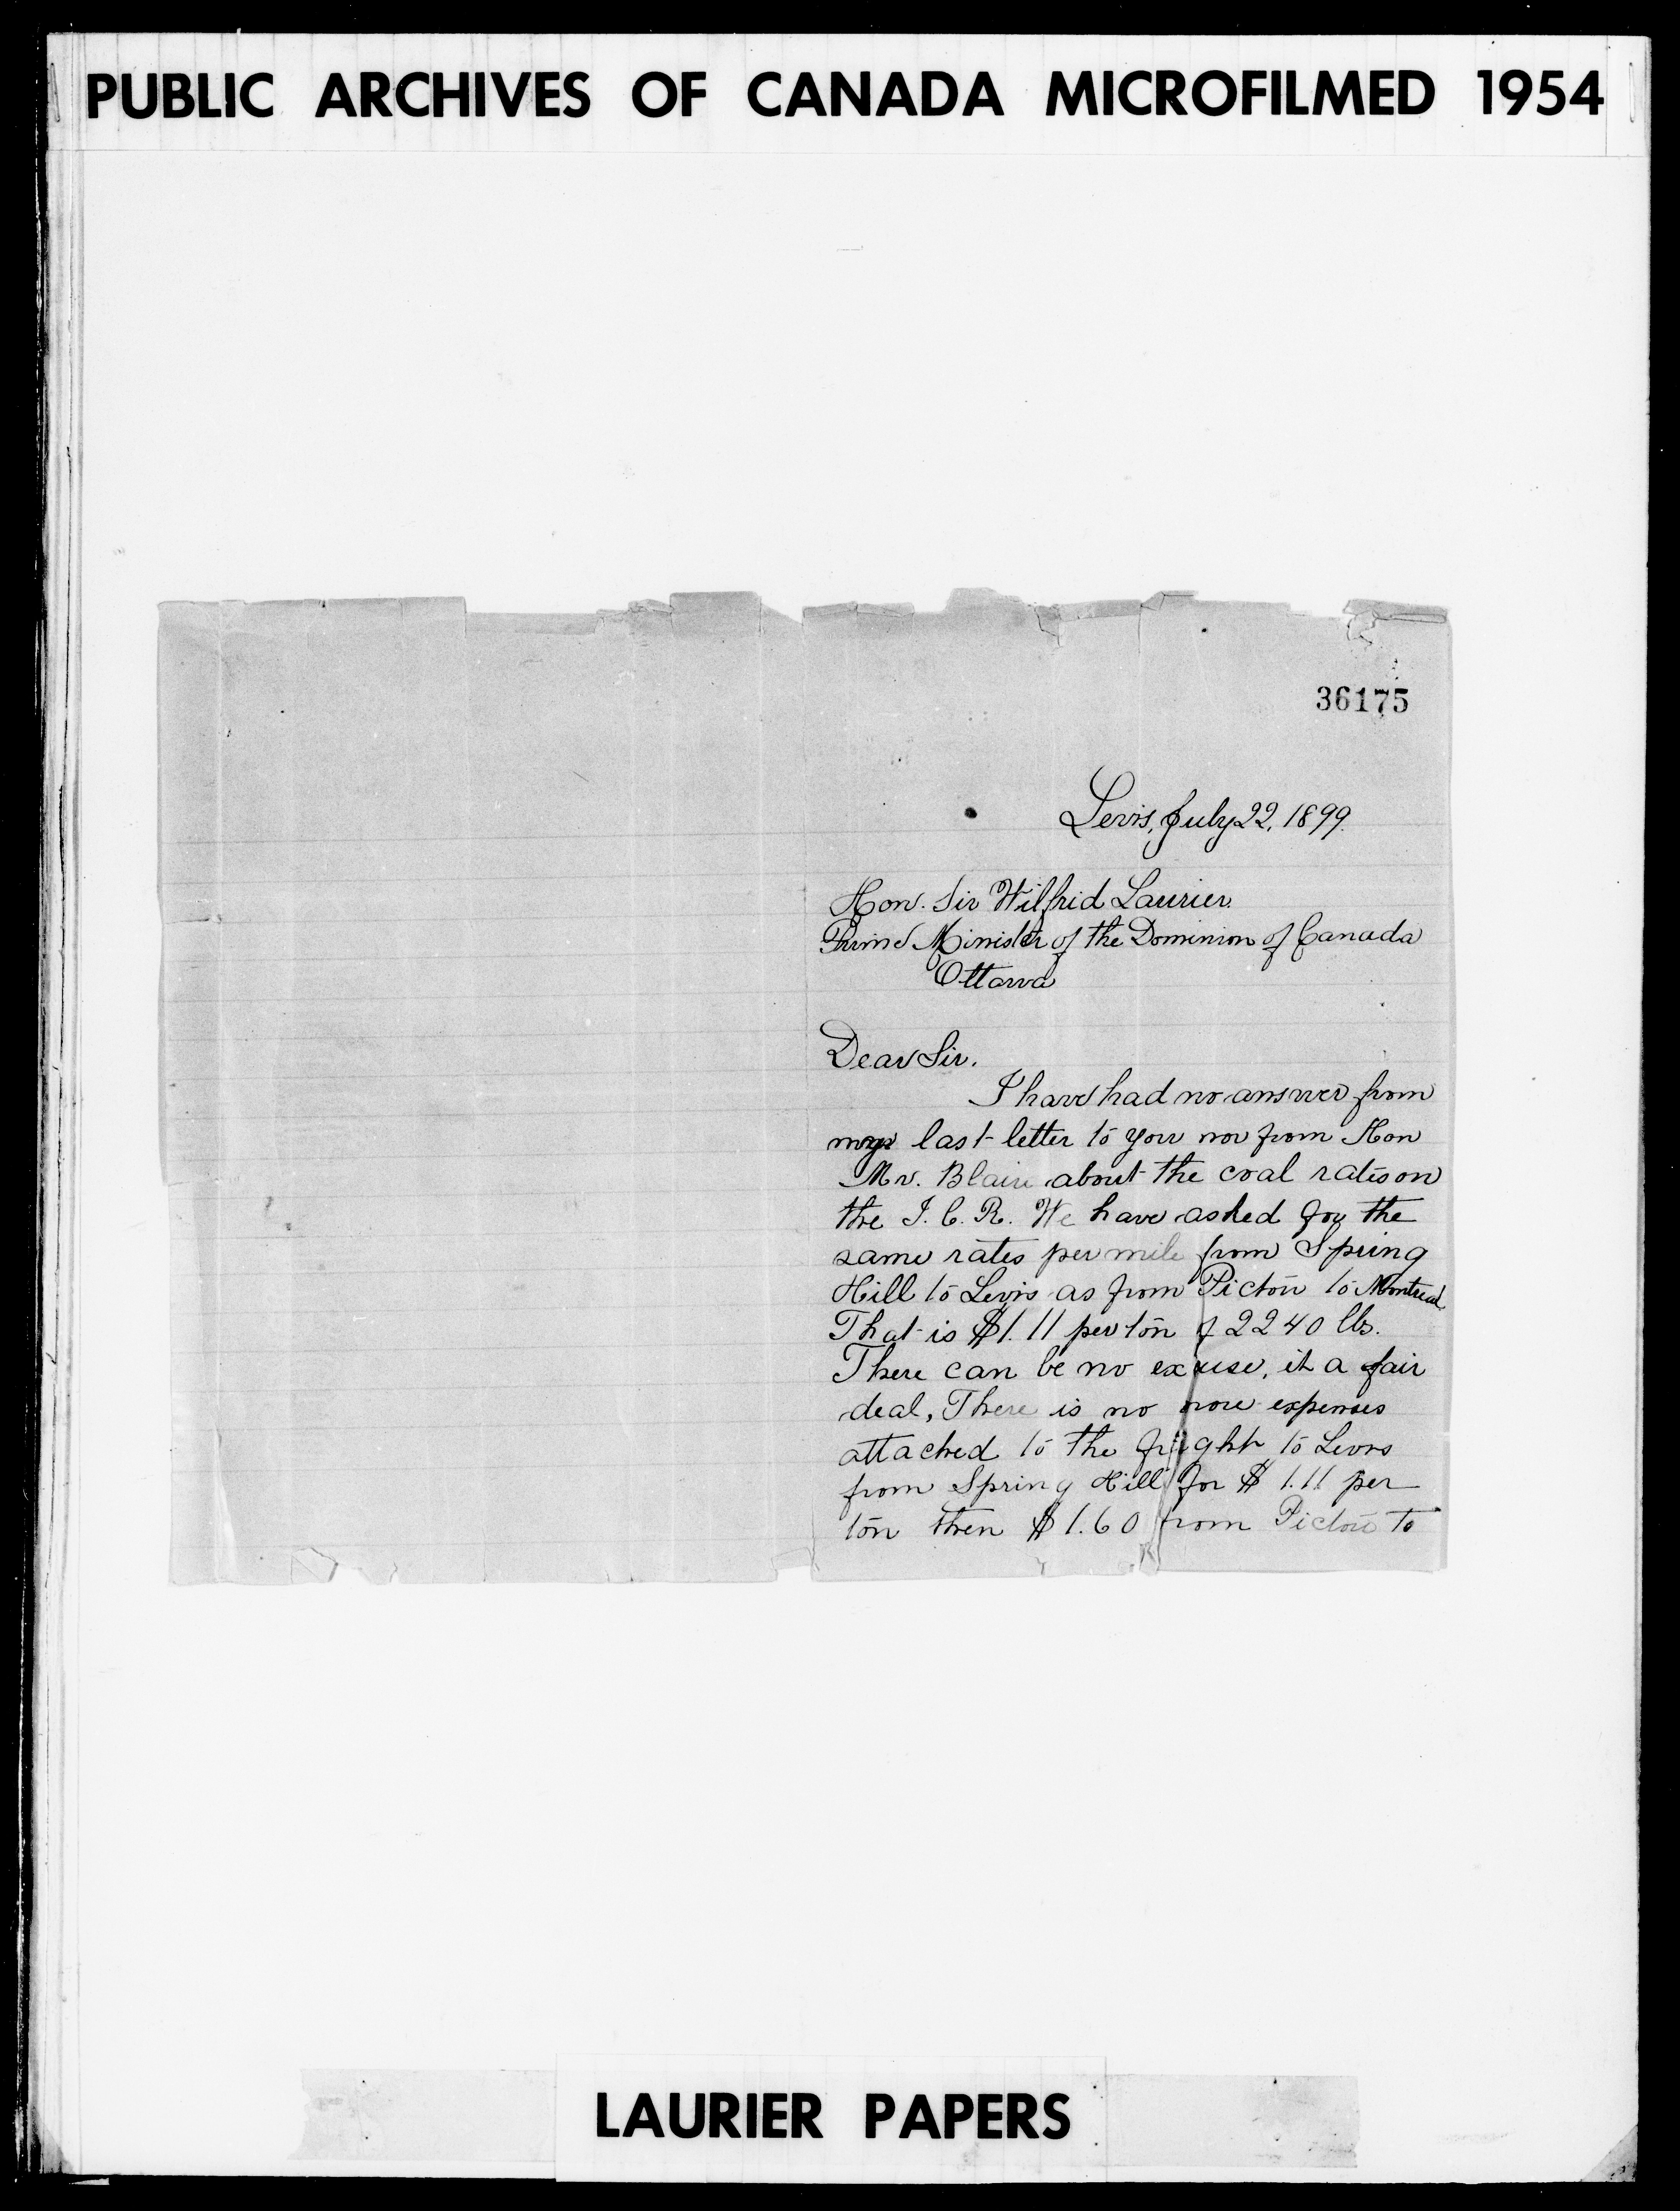 PUBLIC ARCHIVES OF CANADA MICROFILMED 1954
36175
Levis, July 22, 1899.
Hon. Sir Wilfrid Laurier.
Prime Minister of the Dominion of Canada
Ottawa
Dear Sir.
I have had no answer from
my last letter to you nor from Hon
Mr. Blair about the coal rates on
the I. C. R. We have asked for the
same rates per mile from Spring
Hill to Levis as from Pictou to Montreal
That is $1.11 per ton of 2240 lbs.
There can be no excuse, it a fair
deal, There is no more expenses
attached to the freight to Levis
from Spring Hill for $ 1.11 per
ton then $1.60 from Pictou to
LAURIER PAPERS